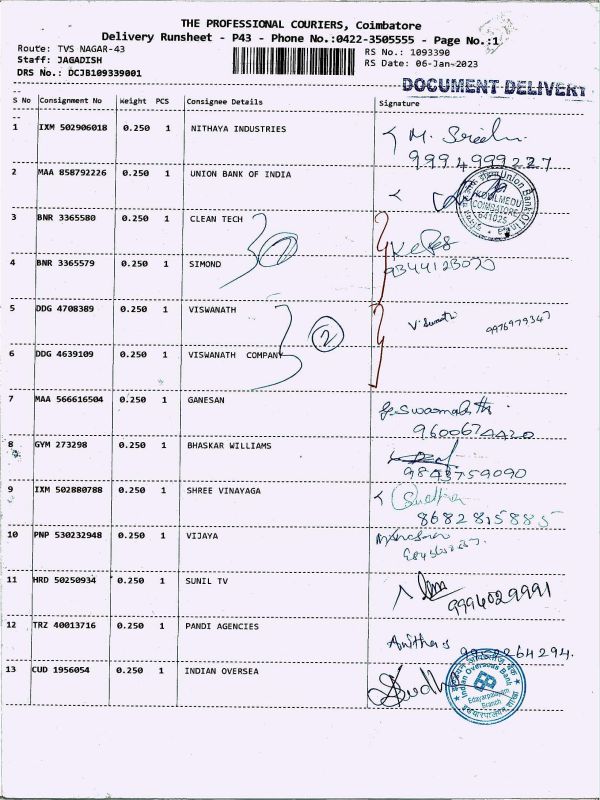 THE PROFESSIONAL COURIERS, Coimbatore
Delivery Runsheet - P43 - Phone No.:0422-3505555 - Page No.:1
Route: TVS NAGAR-43
Staff: JAGADISH
DRS No.: DCJB109339001
RS No.: 1093390
RS Date: 06-Jan-2023
DOCUMENT DELIVERY
S No Consignment No Weight PCS Consignee Details Signature
1 IXM 502906018 0.250 1 NITHAYA INDUSTRIES
9994999227
2 MAA 858792226 0.250 1 UNION BANK OF INDIA
Union Bank Of India
COIMBATORE
641025
3 BNR 3365580 0.250 1 CLEAN TECH
4 BNR 3365579 0.250 1 SIMOND
2
5 DDG 4708389 0.250 1 VISWANATH
9976979347
2
6 DDG 4639109 0.250 1 VISWANATH COMPANY
7 MAA 566616504 0.250 1 GANESAN
8 GYM 273298 0.250 1 BHASKAR WILLIAMS
9843759090
9 IXM 502880788 0.250 1 SHREE VINAYAGA
8682815885
10 PNP 530232948 0.250 1 VIJAYA
11 HRD 50250934 0.250 1 SUNIL TV
9994029991
12 TRZ 40013716 0.250 1 PANDI AGENCIES
13 CUD 1956054 0.250 1 INDIAN OVERSEA
Indian Overseas Bank
Branch